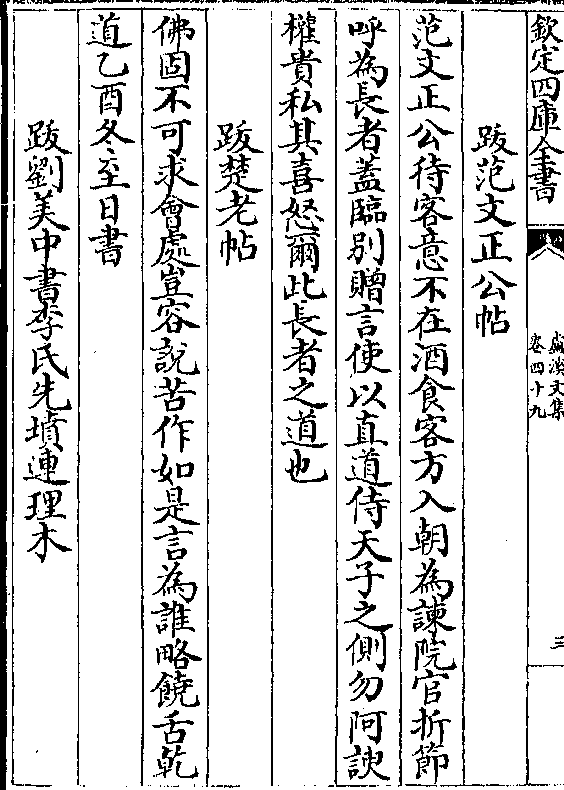 欽定四庫全書
盧溪文集
卷四十九
三
跋范文正公帖
范文正公待客意不在酒食客方入朝為諫院官折節
呼為長者蓋臨別贈言使以直道侍天子之側勿阿諛
權貴私其喜怒爾此長者之道也
跋楚老帖
佛固不可求會處豈容説苦作如是言為誰略饒舌乾
道乙酉冬至日書
跋劉美中書李氏先墳連理木